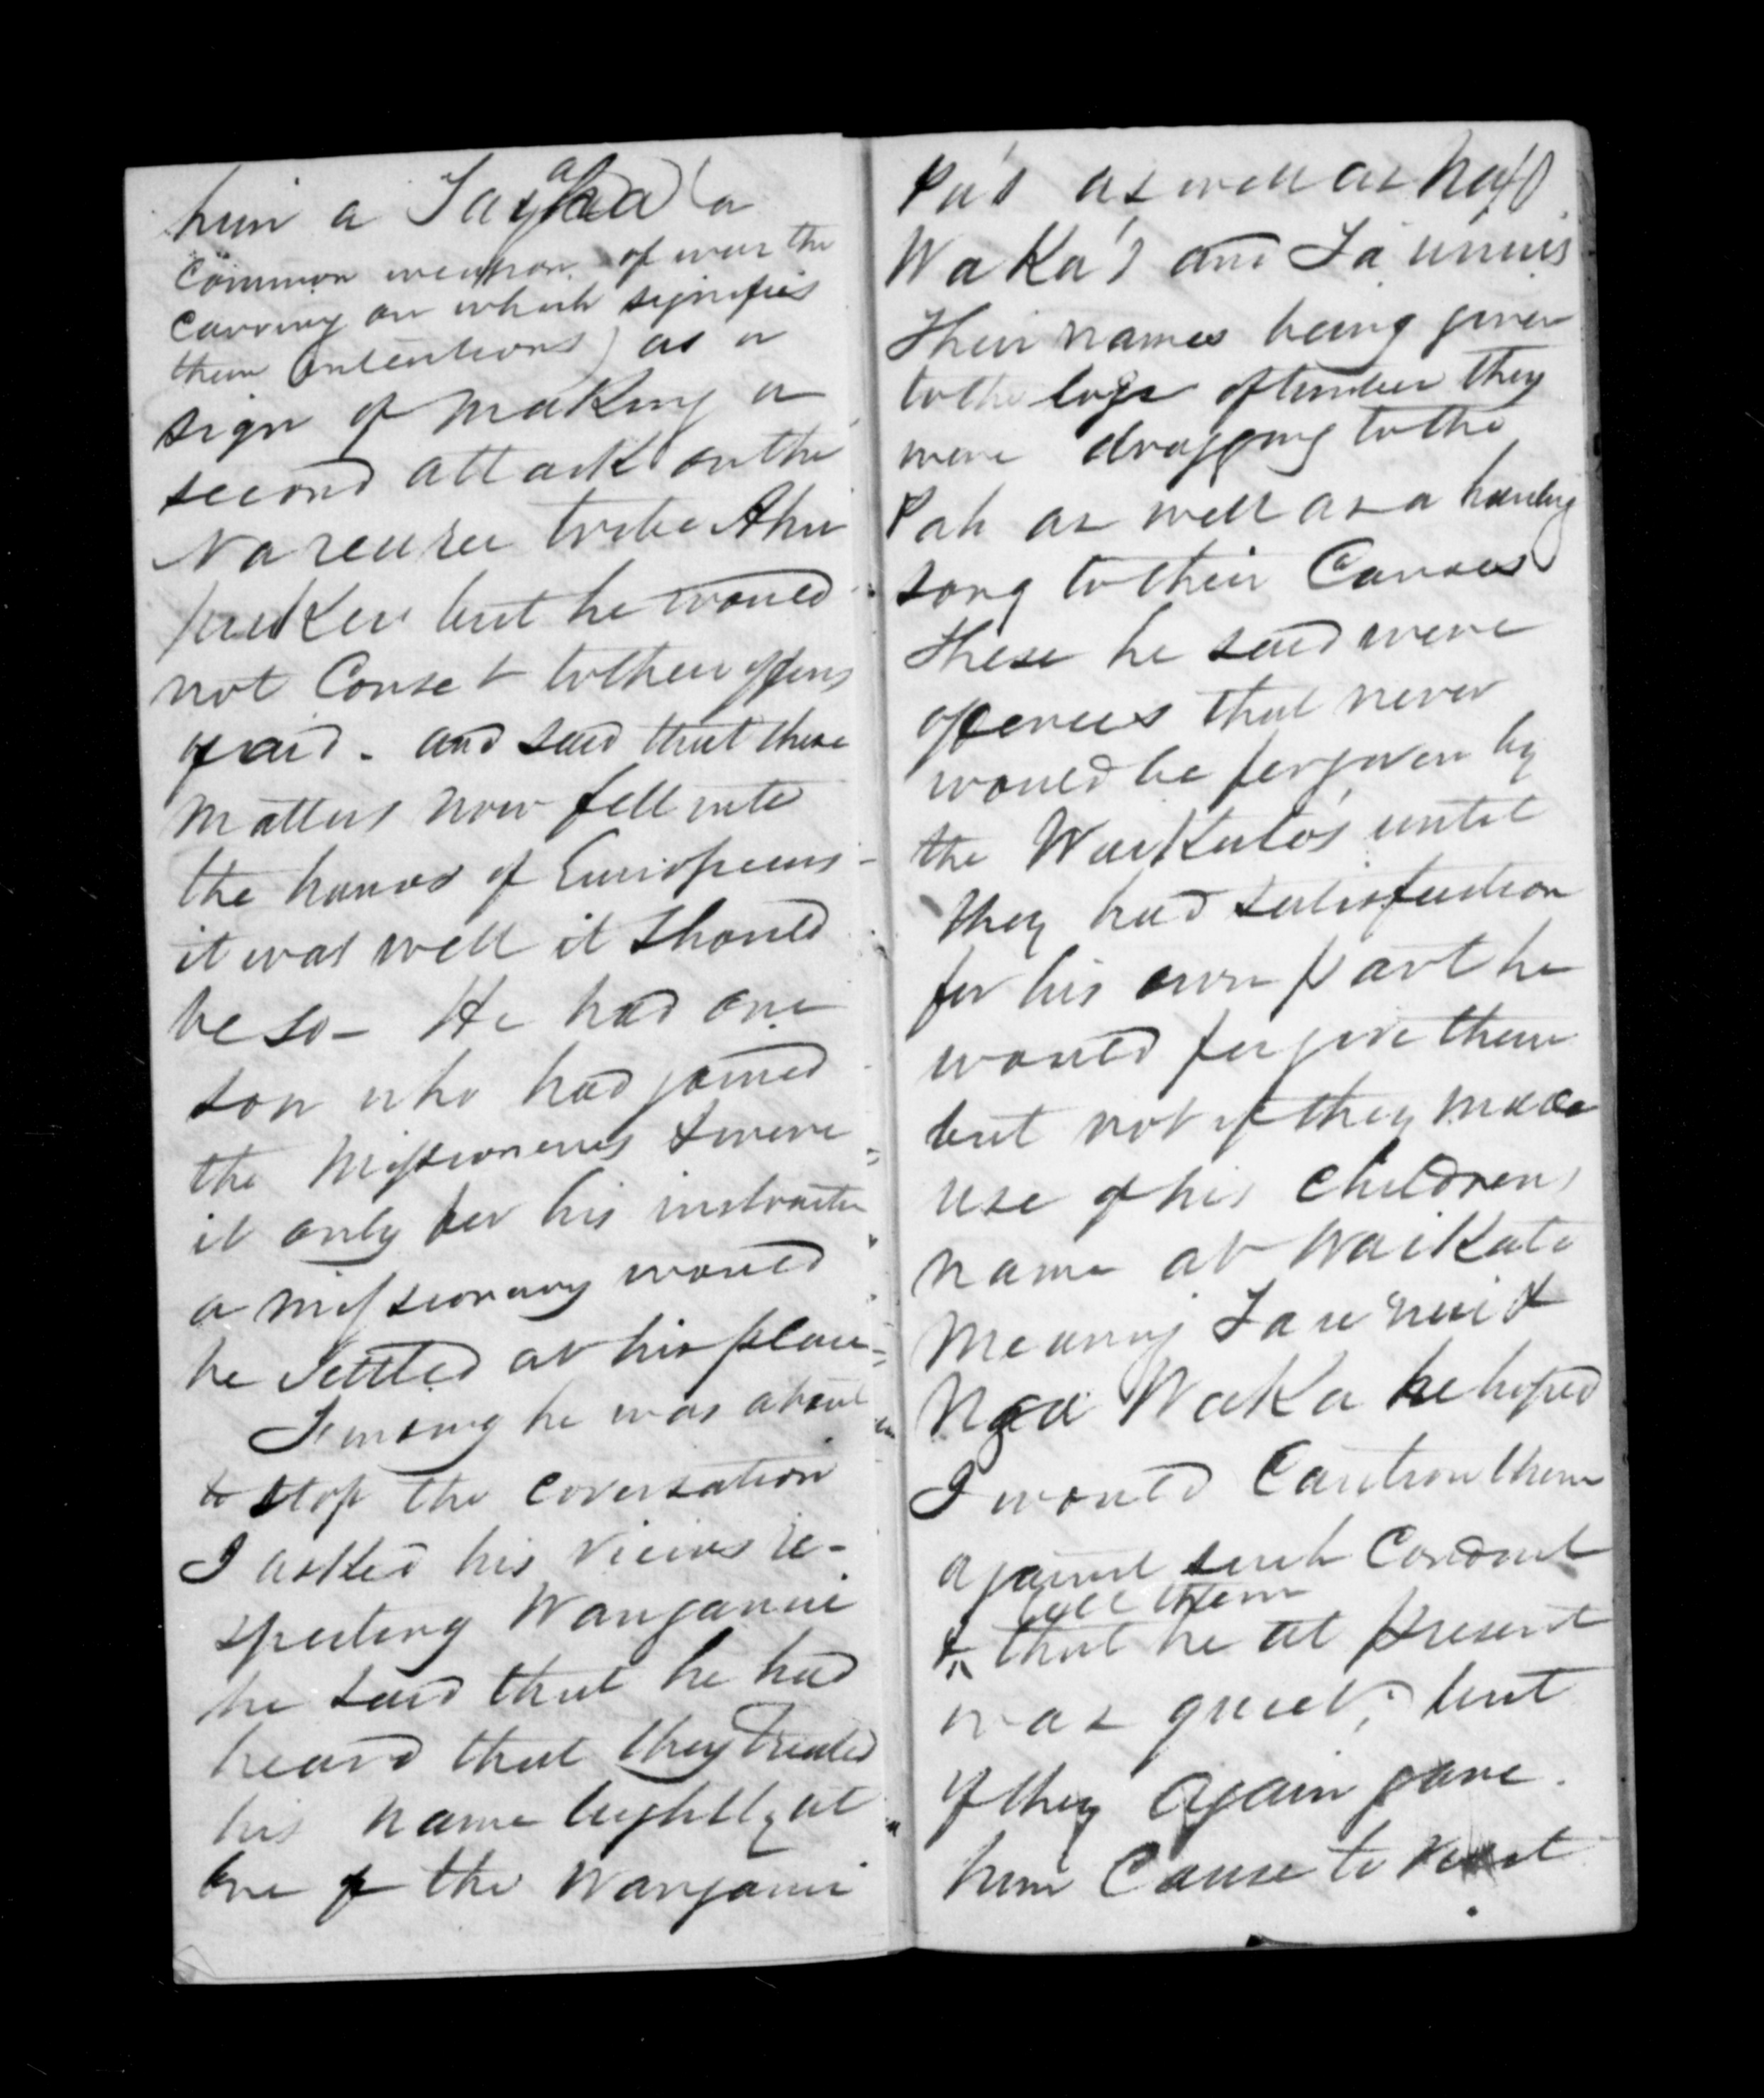 him a Tayaha (a
common weapon of war the
carving on which signifies
their intentions) as a
sign of making a
second attack on the
tribe
but he would
not Conset to their offers
of aid - and said that these
matters now fell into
the hands of Europeans -
it was well it should
be so - He had one
son who had joined
the Missioneries & were
it only for his instructn
a missionary would
be settled at his place =
Finding he was about
to stop the coversation
I asked his views re-
specting Wanganui
he said that he had
heard that they treated
his name lightly at
one of the Wanganui
Pa's as well as
Waka's and
Their names being given
to the logs of timber they
were dragging to the
Pah as well as a hauling
song to their Canoes
These he said were
offences that never
would be forgiven by
the Waikato's until
they had satisfaction
for his own part he
would forgive them
but not if they made
use of his childrens
name at Waikato
meaning &
Waka he hoped
I would Caution them
against such Conduct
tell them
& that he at present
was quiet; but
if they again gave
him Cause to